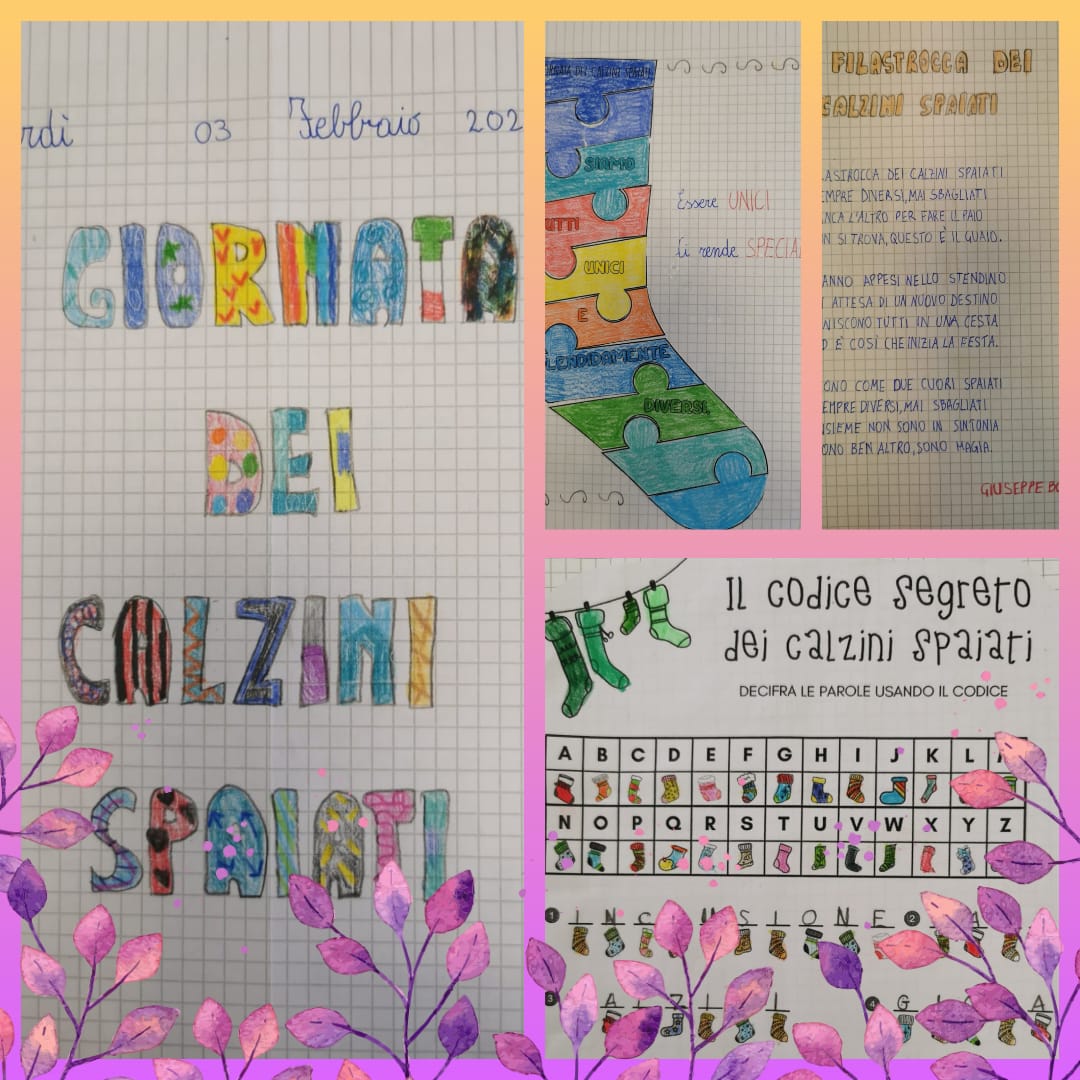 rdì 03 Febbraio 202
GIORNATA
DEI
CALZINI
SPAIATI
DEI CALZINI SPAIATI
SIAMO
UTTI
UNICI
E
LENDIDAMENTE
DIVERSI,
Essere UNICI
Ci rende SPECIA
FILASTROCCA DEI
CALZINI SPAIATI
LASTROCCA DEI CALZINI SPAIATI
EMPRE DIVERSI, MAI SBAGLIATI
NCA L'ALTRO PER FARE IL PAIO
N SI TROVA, QUESTO È IL GUAIO.
ANNO APPESI NELLO STENDINO
ATTESA DI UN NUOVO DESTINO
NISCONO TUTTI IN UNA CESTA
D È COSÌ CHE INIZIA LA FESTA.
ONO COME DUE CUORI SPAIATI
EMPRE DIVERSI, MAI SBAGLIATI
NSIEME NON SONO IN SINTONIA
ONO BEN ALTRO, SONO MAGIA.
GIUSEPPE BO
Il codice segreto
dei calzini spaiati
DECIFRA LE PAROLE USANDO IL CODICE
A B C D E F G H I J K L
N O P Q R S T U V W X Y Z
1 I N C U S I O N E 2 A
3 A Z I I 4 G I A